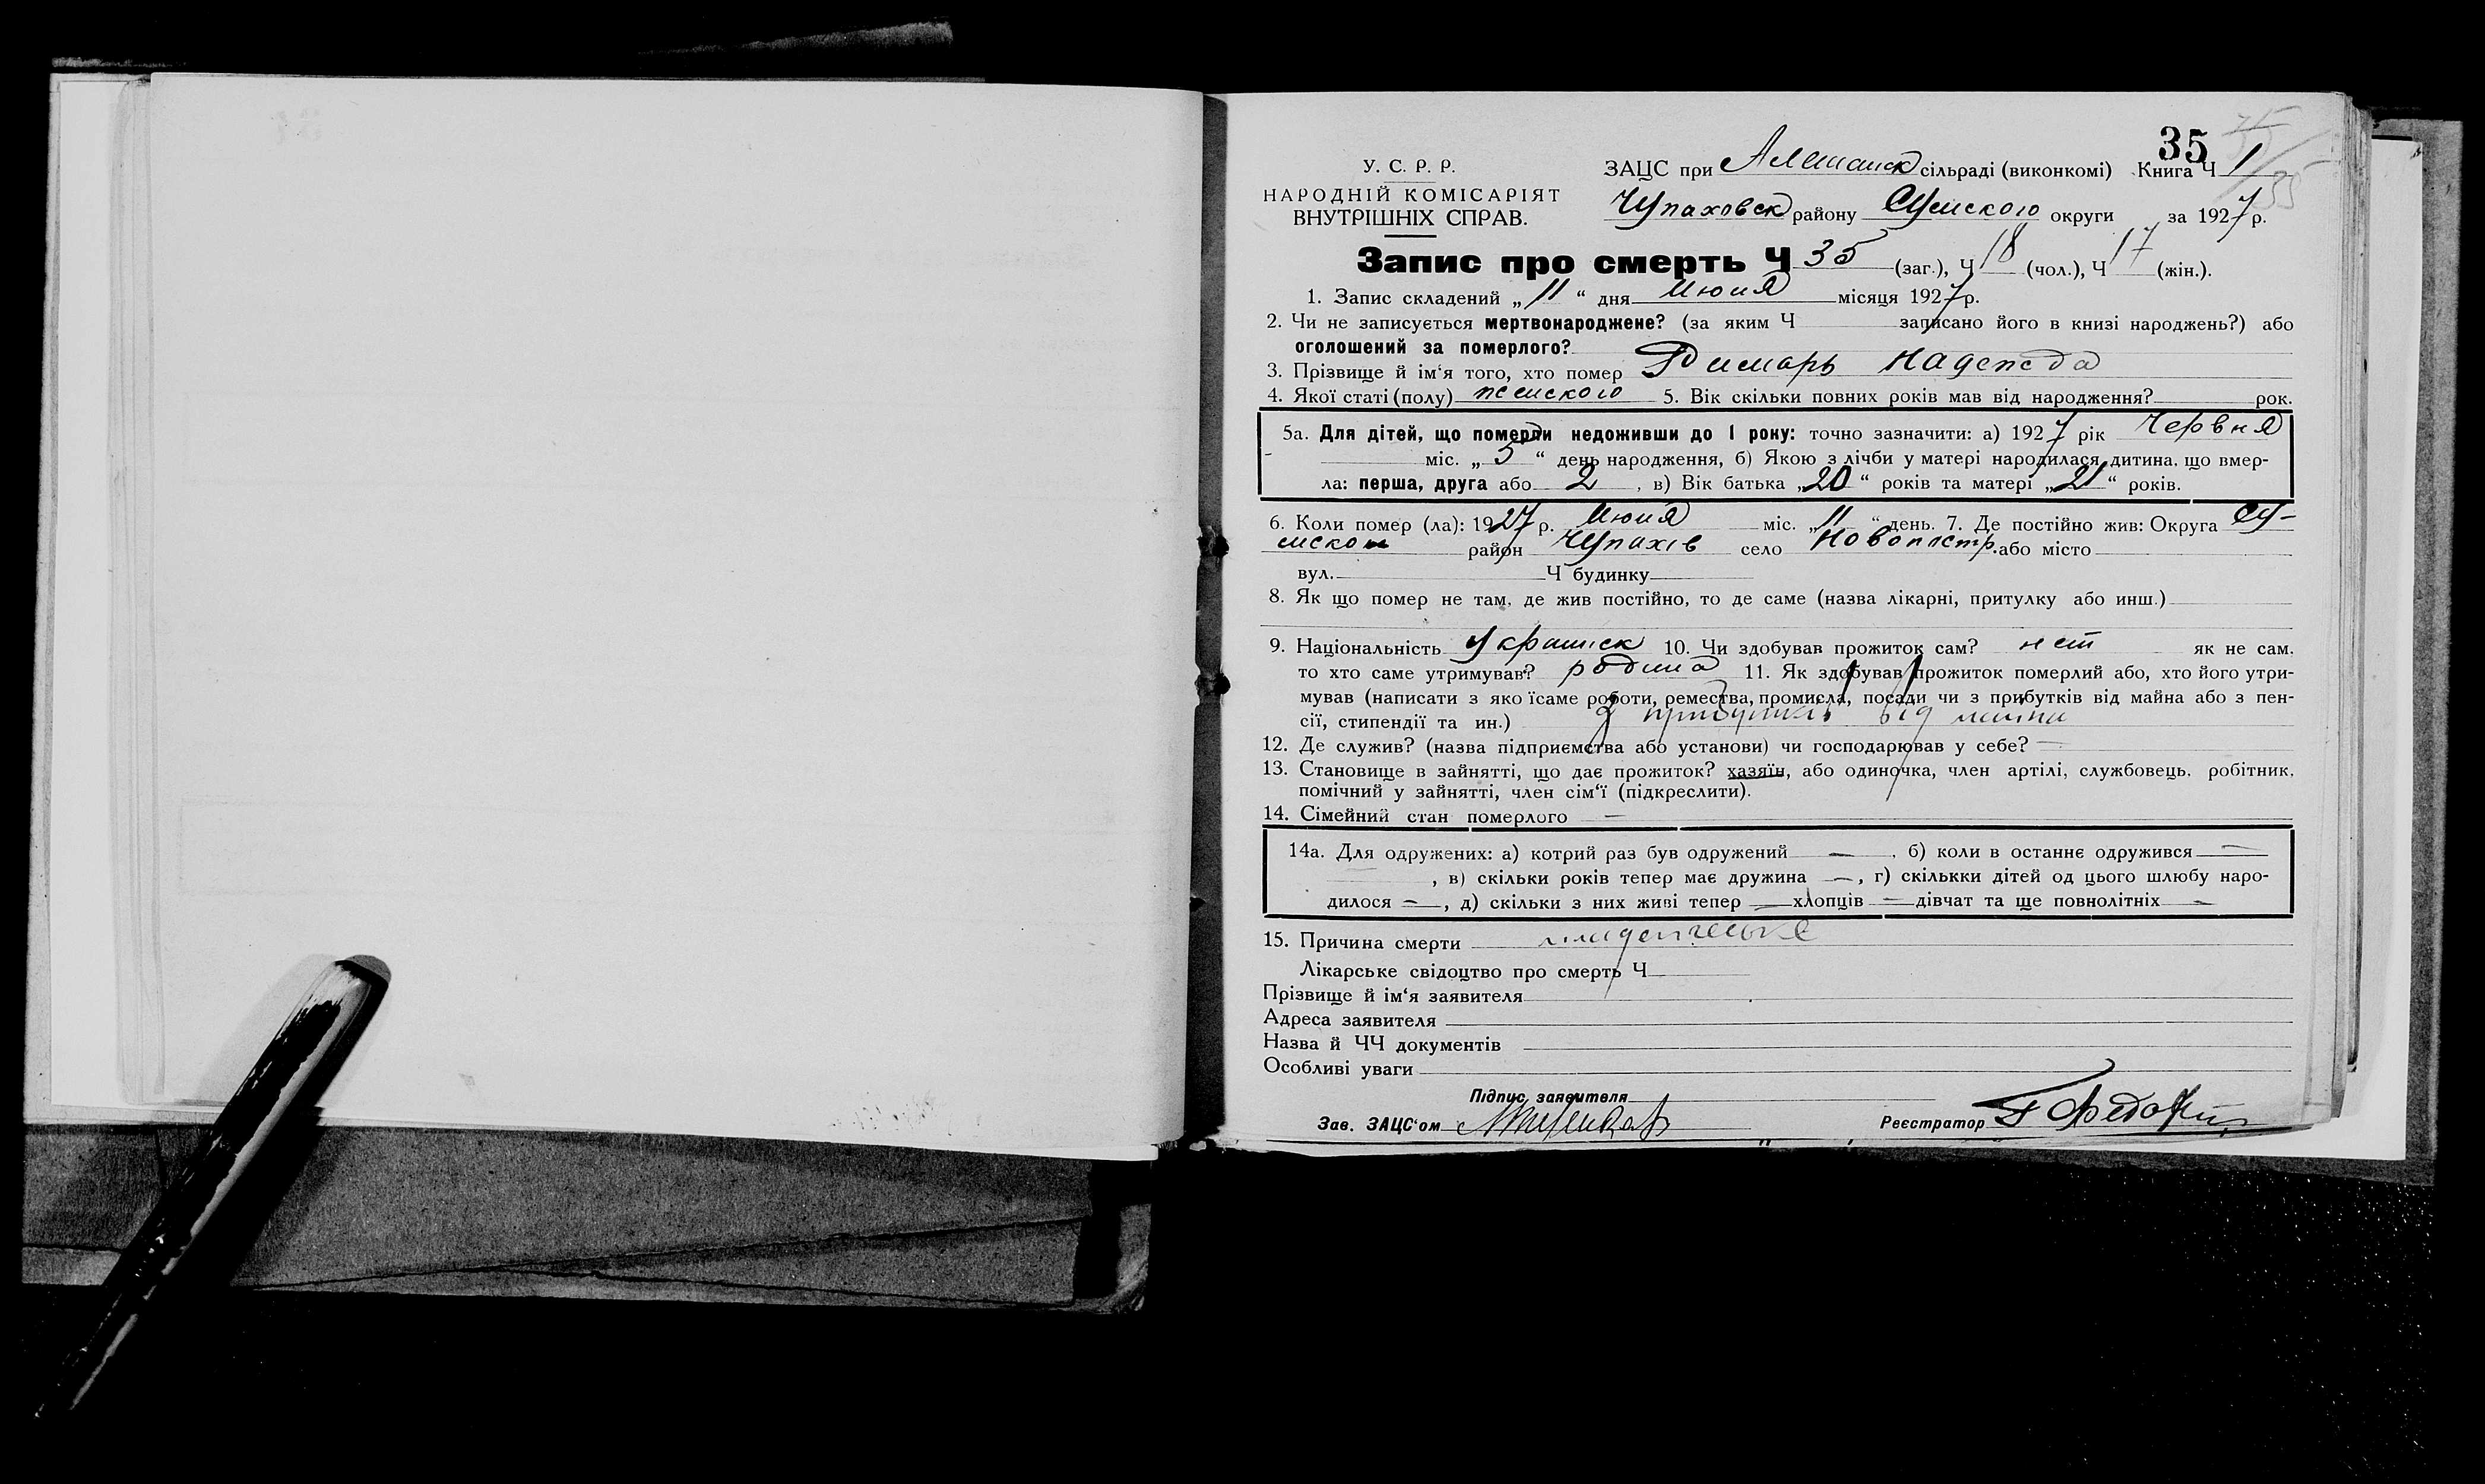 35
У. С. Р. Р.
НАРОДНІЙ КОМІСАРІЯТ
ВНУТРІШНІХ СПРАВ.
ЗАЦС при Алешанск сільраді (виконкомі) Книга Ч 1
Чупаховск району Сумского округи за 1927 р.
Запис про смерть Ч 35 (заг.), Ч 18 (чол.), Ч 17 (жін.).
1. Запис складений „ 11 “ дня Июня місяця 1927 р.
2. Чи не записується мертвонароджене? (за яким Ч записано його в книзі народжень?) або
оголошений за померлого?
3. Прізвище й ім‘я того, хто помер Римарь Надежда
4. Якої статі (полу) женского 5. Вік скільки повних років мав від народження? рок.
5а. Для дітей, що померли недоживши до 1 року: точно зазначити: а) 1927 рік Червня
міс. „ 5 “ день народження, б) Якою з лічби у матері народилася дитина, що вмер-
ла: перша, друга або 2 , в) Вік батька „ 20 “ років та матері „ 21 “ років.
6. Коли помер (ла): 1927 р. Июня міс. „ 11 “ день. 7. Де постійно жив: Округа Су-
мском район Чупахів село Новопостр. або місто
вул. Ч будинку
8. Як що помер не там, де жив постійно, то де саме (назва лікарні, притулку або инш.)
9. Національність Украинск 10. Чи здобував прожиток сам? нет як не сам,
то хто саме утримував? родина 11. Як здобував прожиток померлий або, хто його утри-
мував (написати з яко їсаме роботи, ремества, промисла, посади чи з прибутків від майна або з пен-
сії, стипендії та ин.) З прибутків від майна
12. Де служив? (назва підприємства або установи) чи господарював у себе? —
13. Становище в зайнятті, що дає прожиток? хазяїн, або одиночка, член артілі, службовець, робітник,
помічний у зайнятті, член сім‘ї (підкреслити).
14. Сімейний стан померлого —
14а. Для одружених: а) котрий раз був одружений — , б) коли в останнє одружився —
, в) скільки років тепер має дружина — , г) скількки дітей од цього шлюбу наро-
дилося — , д) скільки з них живі тепер — хлопців — дівчат та ще повнолітніх —
15. Причина смерти младенческе
Лікарське свідоцтво про смерть Ч
Прізвище й ім‘я заявителя
Адреса заявителя
Назва й ЧЧ документів
Особливі уваги
Підпис заявителя
Зав. ЗАЦС‘ом
Реєстратор